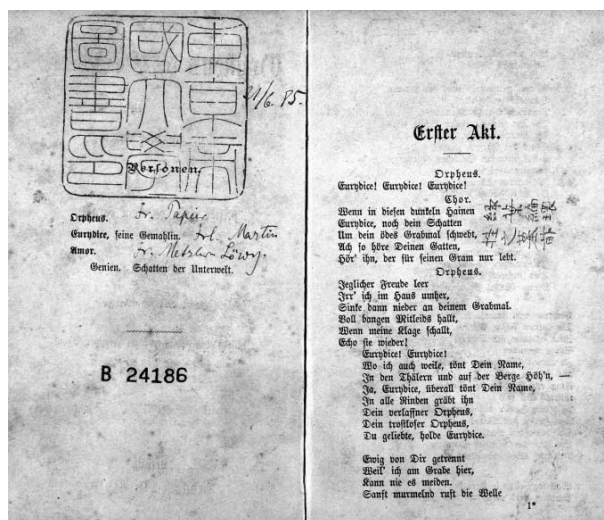 東京帝
國大學
圖書印
21/6. 85.
Personen.
Orpheus. Fr. Papier
Eurydice, seine Gemahlin. Frl. Martin
Amor. Fr. Metzler-Löwy.
Genien. Schatten der Unterwelt.
B 24186
Erster Akt.
Orpheus.
Eurydice! Eurydice! Eurydice!
Chor.
Wenn in diesen dunkeln Hainen
Eurydice, noch dein Schatten
Um dein ödes Grabmal schwebt,
Ach so höre Deinen Gatten,
Hör' ihn, der für seinen Gram nur lebt.
Orpheus.
Jeglicher Freude leer
Irr' ich im Haus umher,
Sinke dann nieder an deinem Grabmal.
Voll bangen Mitleids hallt,
Wenn meine Klage schallt,
Echo sie wieder!
Eurydice! Eurydice!
Wo ich auch weile, tönt Dein Name,
In den Thälern und auf der Berge Höh'n, —
Ja, Eurydice, überall tönt Dein Name,
In alle Rinden gräbt ihn
Dein verlassner Orpheus,
Dein trostloser Orpheus,
Du geliebte, holde Eurydice.
Ewig von Dir getrennt
Weil' ich am Grabe hier,
Kann nie es meiden.
Sanft murmelnd ruft die Welle
1*